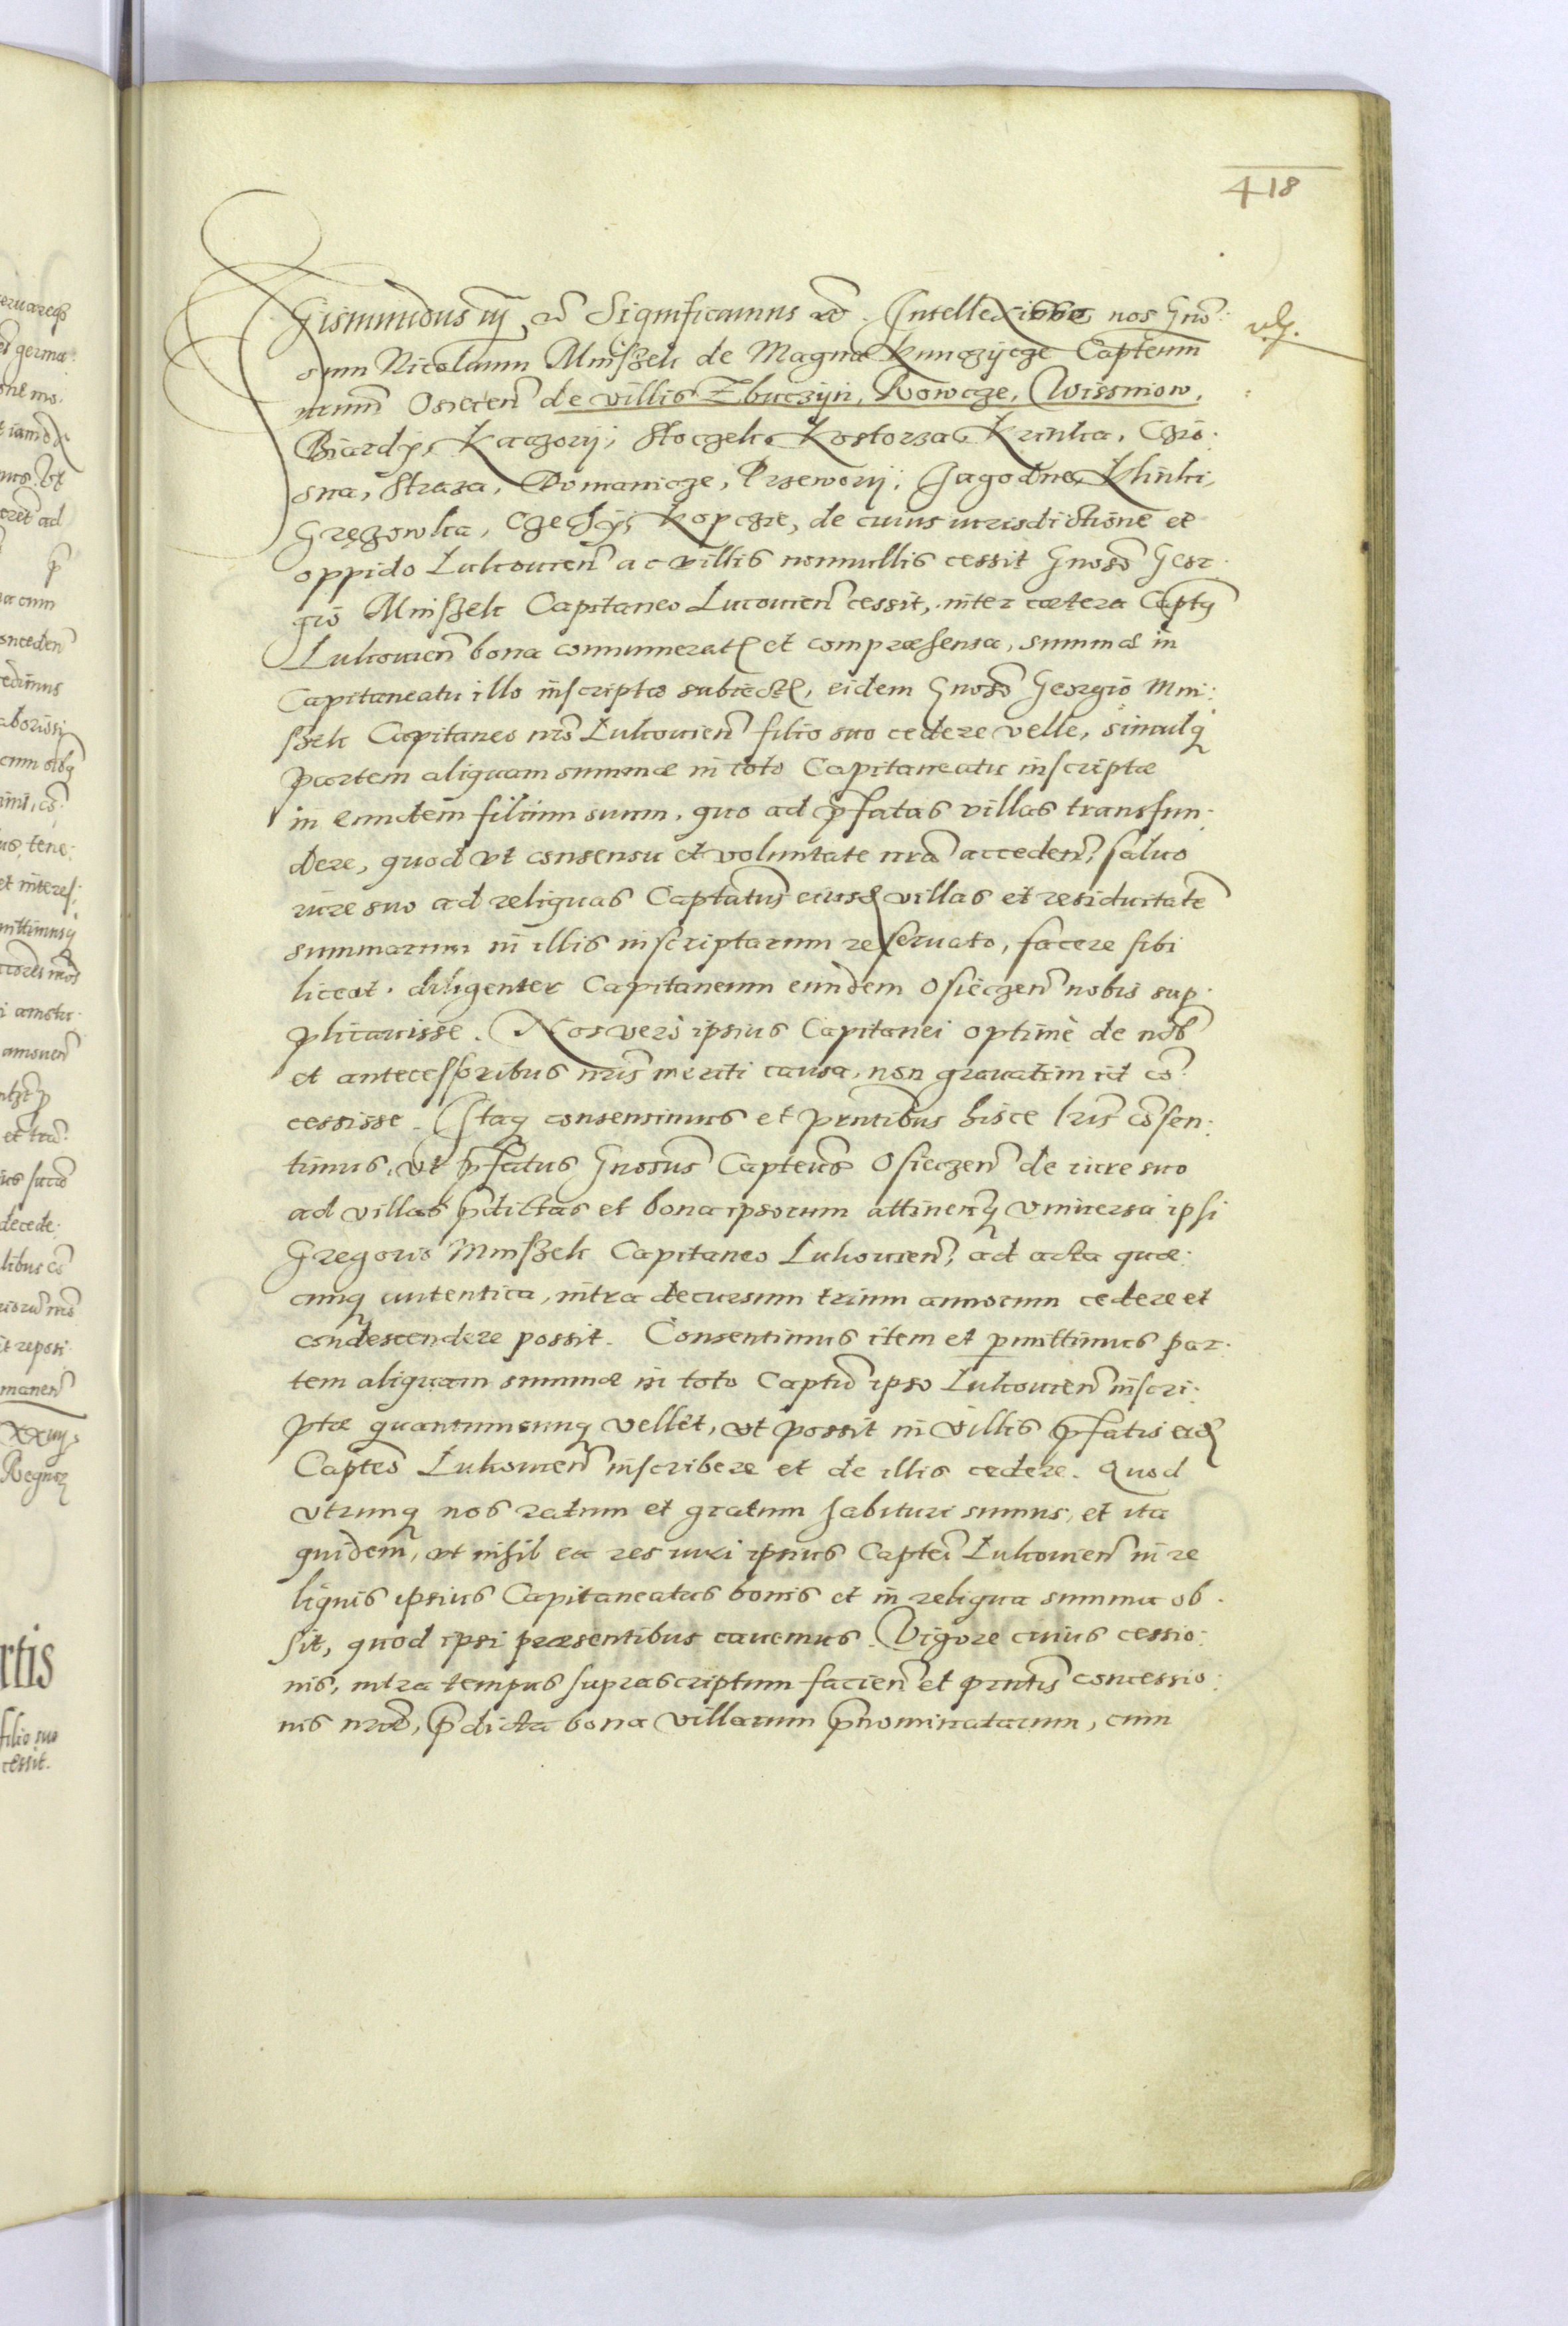 418
Sigismundus iij etc Significamus etc. Intellexisse nos Gnō:
sum Nicolaum Mniszek de Magna Kunczycze Capteum
nrum Osiecen̄ de villis Zbuczyn, Rowcze, Wissniow,
Biardy, Kaczory, Stoczek, Kostorza, Krinka, Cro:
sna, Straza, Domanicze, Przewory, Jagodne, Klinki,
Gręzowka, Czechy, Kopcze, de cuius iurisdictione et
oppido Lukouien̄ ac villis nonnullis cessit Gnosō Geor:
gio Mniszek Capitaneo Lucouien̄ cessit, inter cætera Captus
Lukouien̄ bona connumerat et compræhensa, summæ in
Capitaneatu illo inscriptæ subiect, eidem Gnosō Georgio Mni:
szek Capitaneo nrō Lukouien̄ filio suo cedere velle, simulq
partem aliquam summæ in toto Capitaneatu inscriptæ
in eundem filium suum, quo ad pfatas villas transfun:
dere, quod vt consensu et voluntate nrā acceden̄, saluo
iure suo ad reliquas Captatus eiusd villas et residuitatē
summarum in illis inscriptarum reseruato, facere sibi
liceat. diligenter Capitaneum eundem Osieczen̄ nobis sup:
plicauisse. Nos vero ipsius Capitanei optime de nob
et antecessoribus nrīs meriti causa, non grauatim id cō:
cessisse. Itaq consensimus et pntibus hisce lris cōsen:
timus, vt pfatus Gnosus Capteus Osieczen̄ de iure suo
ad villas pdictas et bona ipsorum attinen vniuersa ipsi
Gregorio Mniszek Capitaneo Lukouien̄, ad acta quæ:
cunq autentica, intra decursum trium annorum cedere et
condescendere possit. Consentimus item et pmittimus par:
tem aliquam summæ in toto Captu ipso Lukouien̄ inscri:
ptæ quantumcunq vellet, vt possit in villis pfatis eid
Capteo Lukouien̄ inscribere et de illis cedere. Quod
vtrunq nos ratum et gratum habituri sumus, et ita
quidem, vt nihil ea res iuri ipsius Captei Lukouien̄ in re
liquis ipsius Capitaneatus bonis et in reliqua summa ob:
sit, quod ipsi præsentibus cauemus. Vigore cuius cessio:
nis, intra tempus suprascriptum facien̄ et pntis concessio:
nis nræ, pdicta bona villarum pnominatarum, cum